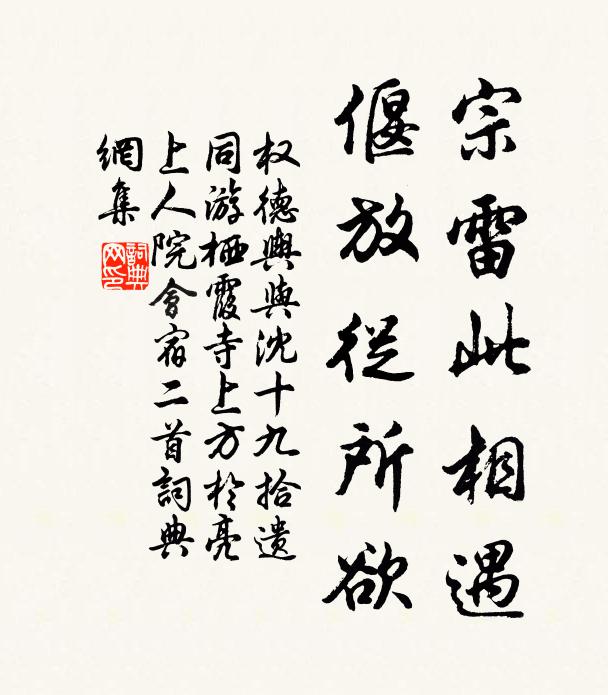 宗雷此相遇
偃放從所欲
权德輿與沈十九拾遗
同游栖霞寺上方於亮
上人院會宿二首詞典
網集
詞典网印